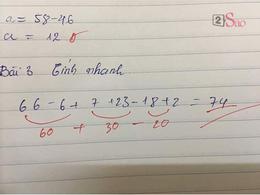 a = 58 - 46
2Sao
a = 12
Bài 3 Tính nhanh
66 - 6 + 7 + 23 - 18 + 2 = 74
60 + 30 - 20